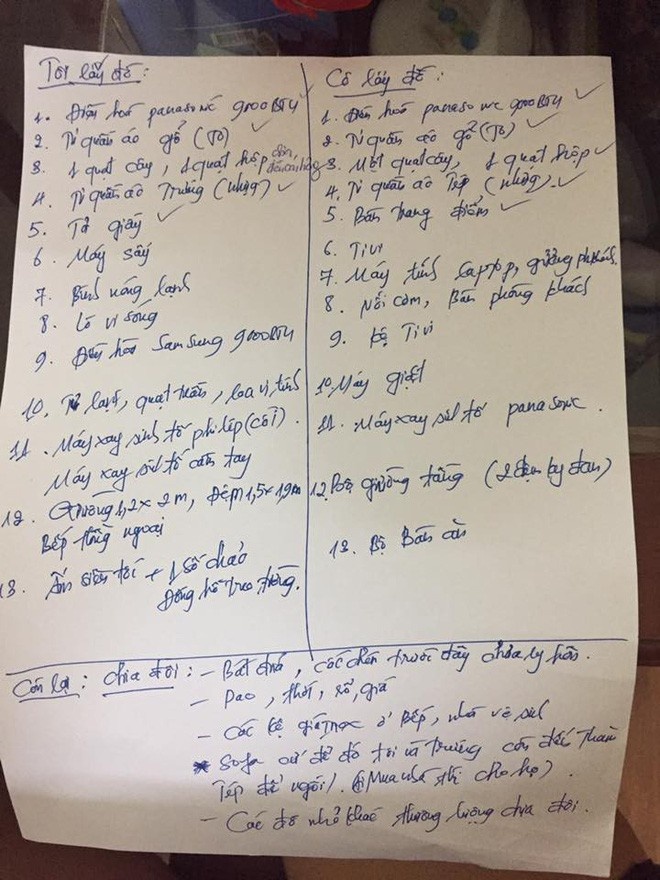 Tôi lấy đồ:
1. Điều hoà panasonic 9000BTU
2. Tủ quần áo gỗ (To)
3. 1 quạt cây, 1 quạt hộp
4. Tủ quần áo Trường (nhựa)
5. Tủ giày
6. Máy sấy
7. Bình nóng lạnh
8. Lò vi sóng
9. Điều hoà Samsung 9000BTU
10. Tủ lạnh, quạt trần, loa vi tính
11. Máy xay sinh tố philip (cối).
Máy xay sinh tố cầm tay
12. Giường 1,2 x 2m, Đệm 1,5 x 1,9m
Bếp hồng ngoại
13. Ấm siêu tốc + 1 số chảo
Đồng hồ treo tường.
Cô lấy đồ:
1. Điều hoà panasonic 9000BTU
2. Tủ quần áo gỗ (To)
3. Một quạt cây, 1 quạt hộp
4. Tủ quần áo Tép (nhựa).
5. Bàn trang điểm
6. Tivi
7. Máy tính laptop, giường ph.khách.
8. Nồi cơm, Bàn phòng khách
9. Kệ Tivi
10. Máy giặt
11. Máy xay sinh tố panasonic.
12. Bộ giường tầng (2 đệm
13. Bộ Bàn ăn
Còn lại: chia đôi: - Bát đũa, cốc chén trước đây chưa ly hôn.
- Dao, thớt, rổ, giá
- Các kệ giá inox ở Bếp, nhà vệ sinh
* Sofa cứ để đó tôi và Trường còn đến thăm
Tép để ngồi/. (Mua nhà thì cho họ).
- Các đồ nhỏ khác thương lượng chia đôi.